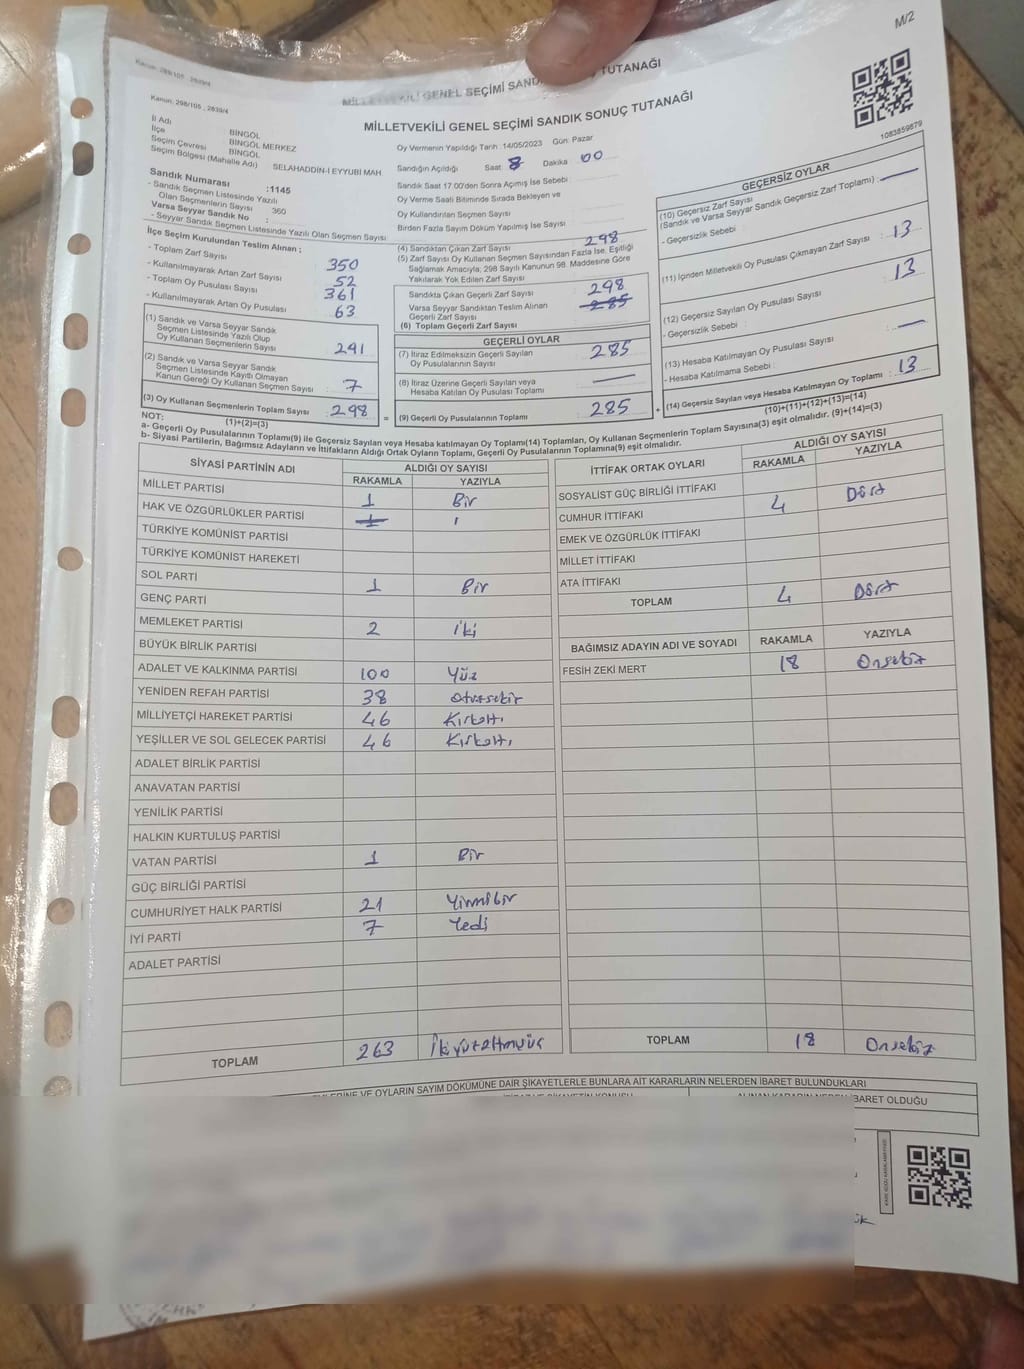 M/2
Kanun: 298/105 , 2839/4
MİLLETVEKİLİ GENEL SEÇİMİ SAND TUTANAĞI
Kanun: 298/105 , 2839/4
MİLLETVEKİLİ GENEL SEÇİMİ SANDIK SONUÇ TUTANAĞI
1083859879
İl Adı BİNGÖL
İlçe BİNGÖL MERKEZ
Seçim Çevresi BİNGÖL
Seçim Bölgesi (Mahalle Adı) SELAHADDİN-İ EYYUBİ MAH
Sandık Numarası :1145
- Sandık Seçmen Listesinde Yazılı
Olan Seçmenlerin Sayısı 360
Varsa Seyyar Sandık No :
- Seyyar Sandık Seçmen Listesinde Yazılı Olan Seçmen Sayısı
Oy Vermenin Yapıldığı Tarih :14/05/2023 Gün: Pazar
Sandığın Açıldığı Saat 8 Dakika 00
Sandık Saat 17:00'den Sonra Açımış İse Sebebi :
Oy Verme Saati Bitiminde Sırada Bekleyen ve
Oy Kullandırılan Seçmen Sayısı
Birden Fazla Sayım Döküm Yapılmış İse Sayısı
İlçe Seçim Kurulundan Teslim Alınan :
- Toplam Zarf Sayısı 350
- Kullanılmayarak Artan Zarf Sayısı 52
- Toplam Oy Pusulası Sayısı 361
- Kullanılmayarak Artan Oy Pusulası 63
(1) Sandık ve Varsa Seyyar Sandık
Seçmen Listesinde Yazılı Olup
Oy Kullanan Seçmenlerin Sayısı 291
(2) Sandık ve Varsa Seyyar Sandık
Seçmen Listesinde Kayıtlı Olmayan
Kanun Gereği Oy Kullanan Seçmen Sayısı 7
(3) Oy Kullanan Seçmenlerin Toplam Sayısı 298
(1)+(2)=(3)
(4) Sandıktan Çıkan Zarf Sayısı 298
(5) Zarf Sayısı Oy Kullanan Seçmen Sayısından Fazla İse, Eşitliği
Sağlamak Amacıyla; 298 Sayılı Kanunun 98. Maddesine Göre
Yakılarak Yok Edilen Zarf Sayısı
Sandıkta Çıkan Geçerli Zarf Sayısı 298
Varsa Seyyar Sandıktan Teslim Alınan
Geçerli Zarf Sayısı 285
(6) Toplam Geçerli Zarf Sayısı
GEÇERLİ OYLAR
(7) İtiraz Edilmeksizin Geçerli Sayılan
Oy Pusulalarının Sayısı 285
(8) İtiraz Üzerine Geçerli Sayılan veya
Hesaba Katılan Oy Pusulası Toplamı —
= (9) Geçerli Oy Pusulalarının Toplamı 285 +
GEÇERSİZ OYLAR
(10) Geçersiz Zarf Sayısı
(Sandık ve Varsa Seyyar Sandık Geçersiz Zarf Toplamı) : —
- Geçersizlik Sebebi :
(11) İçinden Milletvekili Oy Pusulası Çıkmayan Zarf Sayısı : 13
(12) Geçersiz Sayılan Oy Pusulası Sayısı : 13
- Geçersizlik Sebebi :
(13) Hesaba Katılmayan Oy Pusulası Sayısı : —
- Hesaba Katılmama Sebebi :
(14) Geçersiz Sayılan veya Hesaba Katılmayan Oy Toplamı : 13
(10)+(11)+(12)+(13)=(14)
NOT:
a- Geçerli Oy Pusulalarının Toplamı(9) ile Geçersiz Sayılan veya Hesaba katılmayan Oy Toplamı(14) Toplamları, Oy Kullanan Seçmenlerin Toplam Sayısına(3) eşit olmalıdır. (9)+(14)=(3)
b- Siyasi Partilerin, Bağımsız Adayların ve İttifakların Aldığı Ortak Oyların Toplamı, Geçerli Oy Pusulalarının Toplamına(9) eşit olmalıdır.
SİYASİ PARTİNİN ADI ALDIĞI OY SAYISI
RAKAMLA YAZIYLA
MİLLET PARTİSİ 1 Bir
HAK VE ÖZGÜRLÜKLER PARTİSİ 1 ı
TÜRKİYE KOMÜNİST PARTİSİ
TÜRKİYE KOMÜNİST HAREKETİ
SOL PARTİ 1 Bir
GENÇ PARTİ
MEMLEKET PARTİSİ 2 iki
BÜYÜK BİRLİK PARTİSİ
ADALET VE KALKINMA PARTİSİ 100 Yüz
YENİDEN REFAH PARTİSİ 38 otuzsekiz
MİLLİYETÇİ HAREKET PARTİSİ 46 Kırkaltı
YEŞİLLER VE SOL GELECEK PARTİSİ 46 Kırkaltı
ADALET BİRLİK PARTİSİ
ANAVATAN PARTİSİ
YENİLİK PARTİSİ
HALKIN KURTULUŞ PARTİSİ
VATAN PARTİSİ 1 Bir
GÜÇ BİRLİĞİ PARTİSİ
CUMHURİYET HALK PARTİSİ 21 Yirmibir
İYİ PARTİ 7 Yedi
ADALET PARTİSİ
TOPLAM 263 İkiyüzaltmışüç
İTTİFAK ORTAK OYLARI ALDIĞI OY SAYISI
RAKAMLA YAZIYLA
SOSYALİST GÜÇ BİRLİĞİ İTTİFAKI
CUMHUR İTTİFAKI 4 Dört
EMEK VE ÖZGÜRLÜK İTTİFAKI
MİLLET İTTİFAKI
ATA İTTİFAKI
TOPLAM 4 Dört
BAĞIMSIZ ADAYIN ADI VE SOYADI RAKAMLA YAZIYLA
FESİH ZEKİ MERT 18 Onsekiz
TOPLAM 18 Onsekiz
VE OYLARIN SAYIM DÖKÜMÜNE DAİR ŞİKAYETLERLE BUNLARA AİT KARARLARIN NELERDEN İBARET BULUNDUKLARI
İBARET OLDUĞU